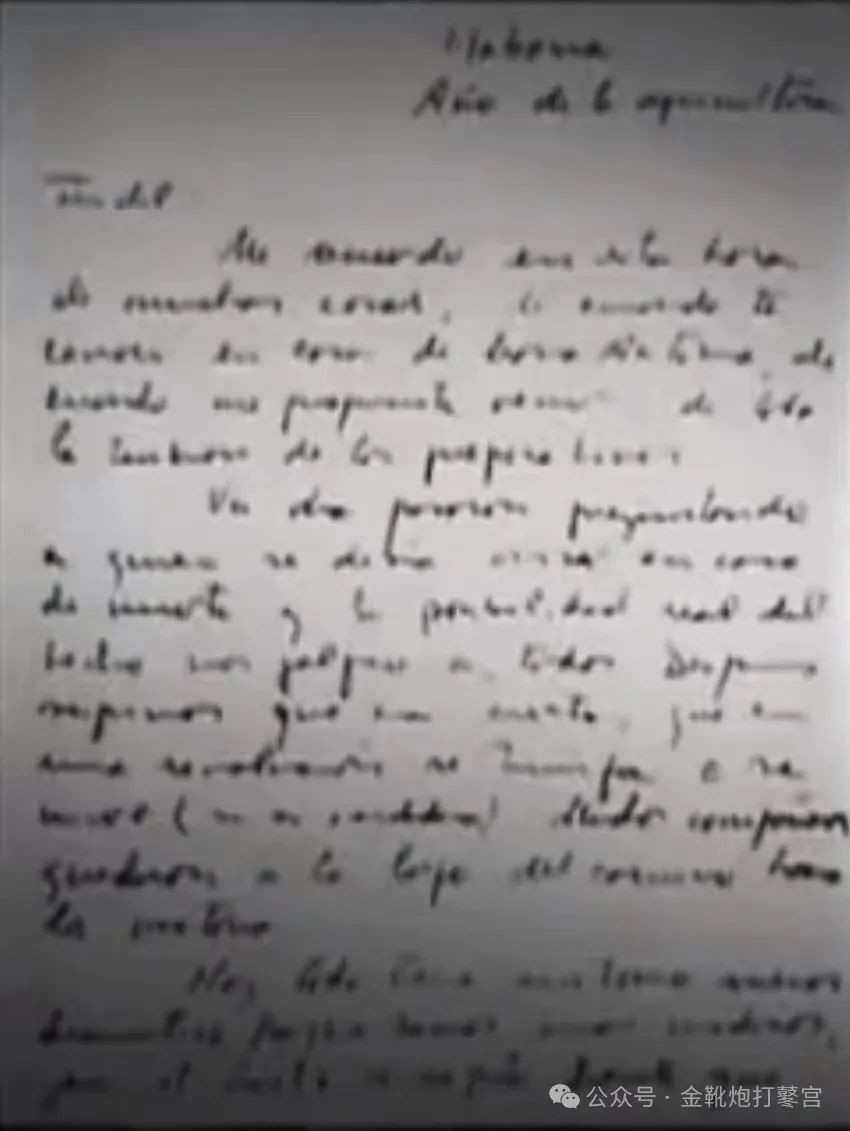 Habana
Año de la agricultura
Fidel
Me acuerdo en esta hora
de muchas cosas, de cuando te
conocí en casa de María Antonia, de
cuando me propusiste venir de toda
la tensión de los preparativos.
Un día pasaron preguntando
a quien se debía avisar en caso
de muerte y la posibilidad real del
hecho nos golpeó a todos Después
supimos que era cierto, que en
una revolución se triunfa o se
muere (si es verdadera) compañeros
quedaron a lo largo del camino hacia
la victoria
Hoy todo tiene un tono menos
dramático porque somos más maduros,
pero el hecho se repite
公众号 · 金靴炮打鼕宫